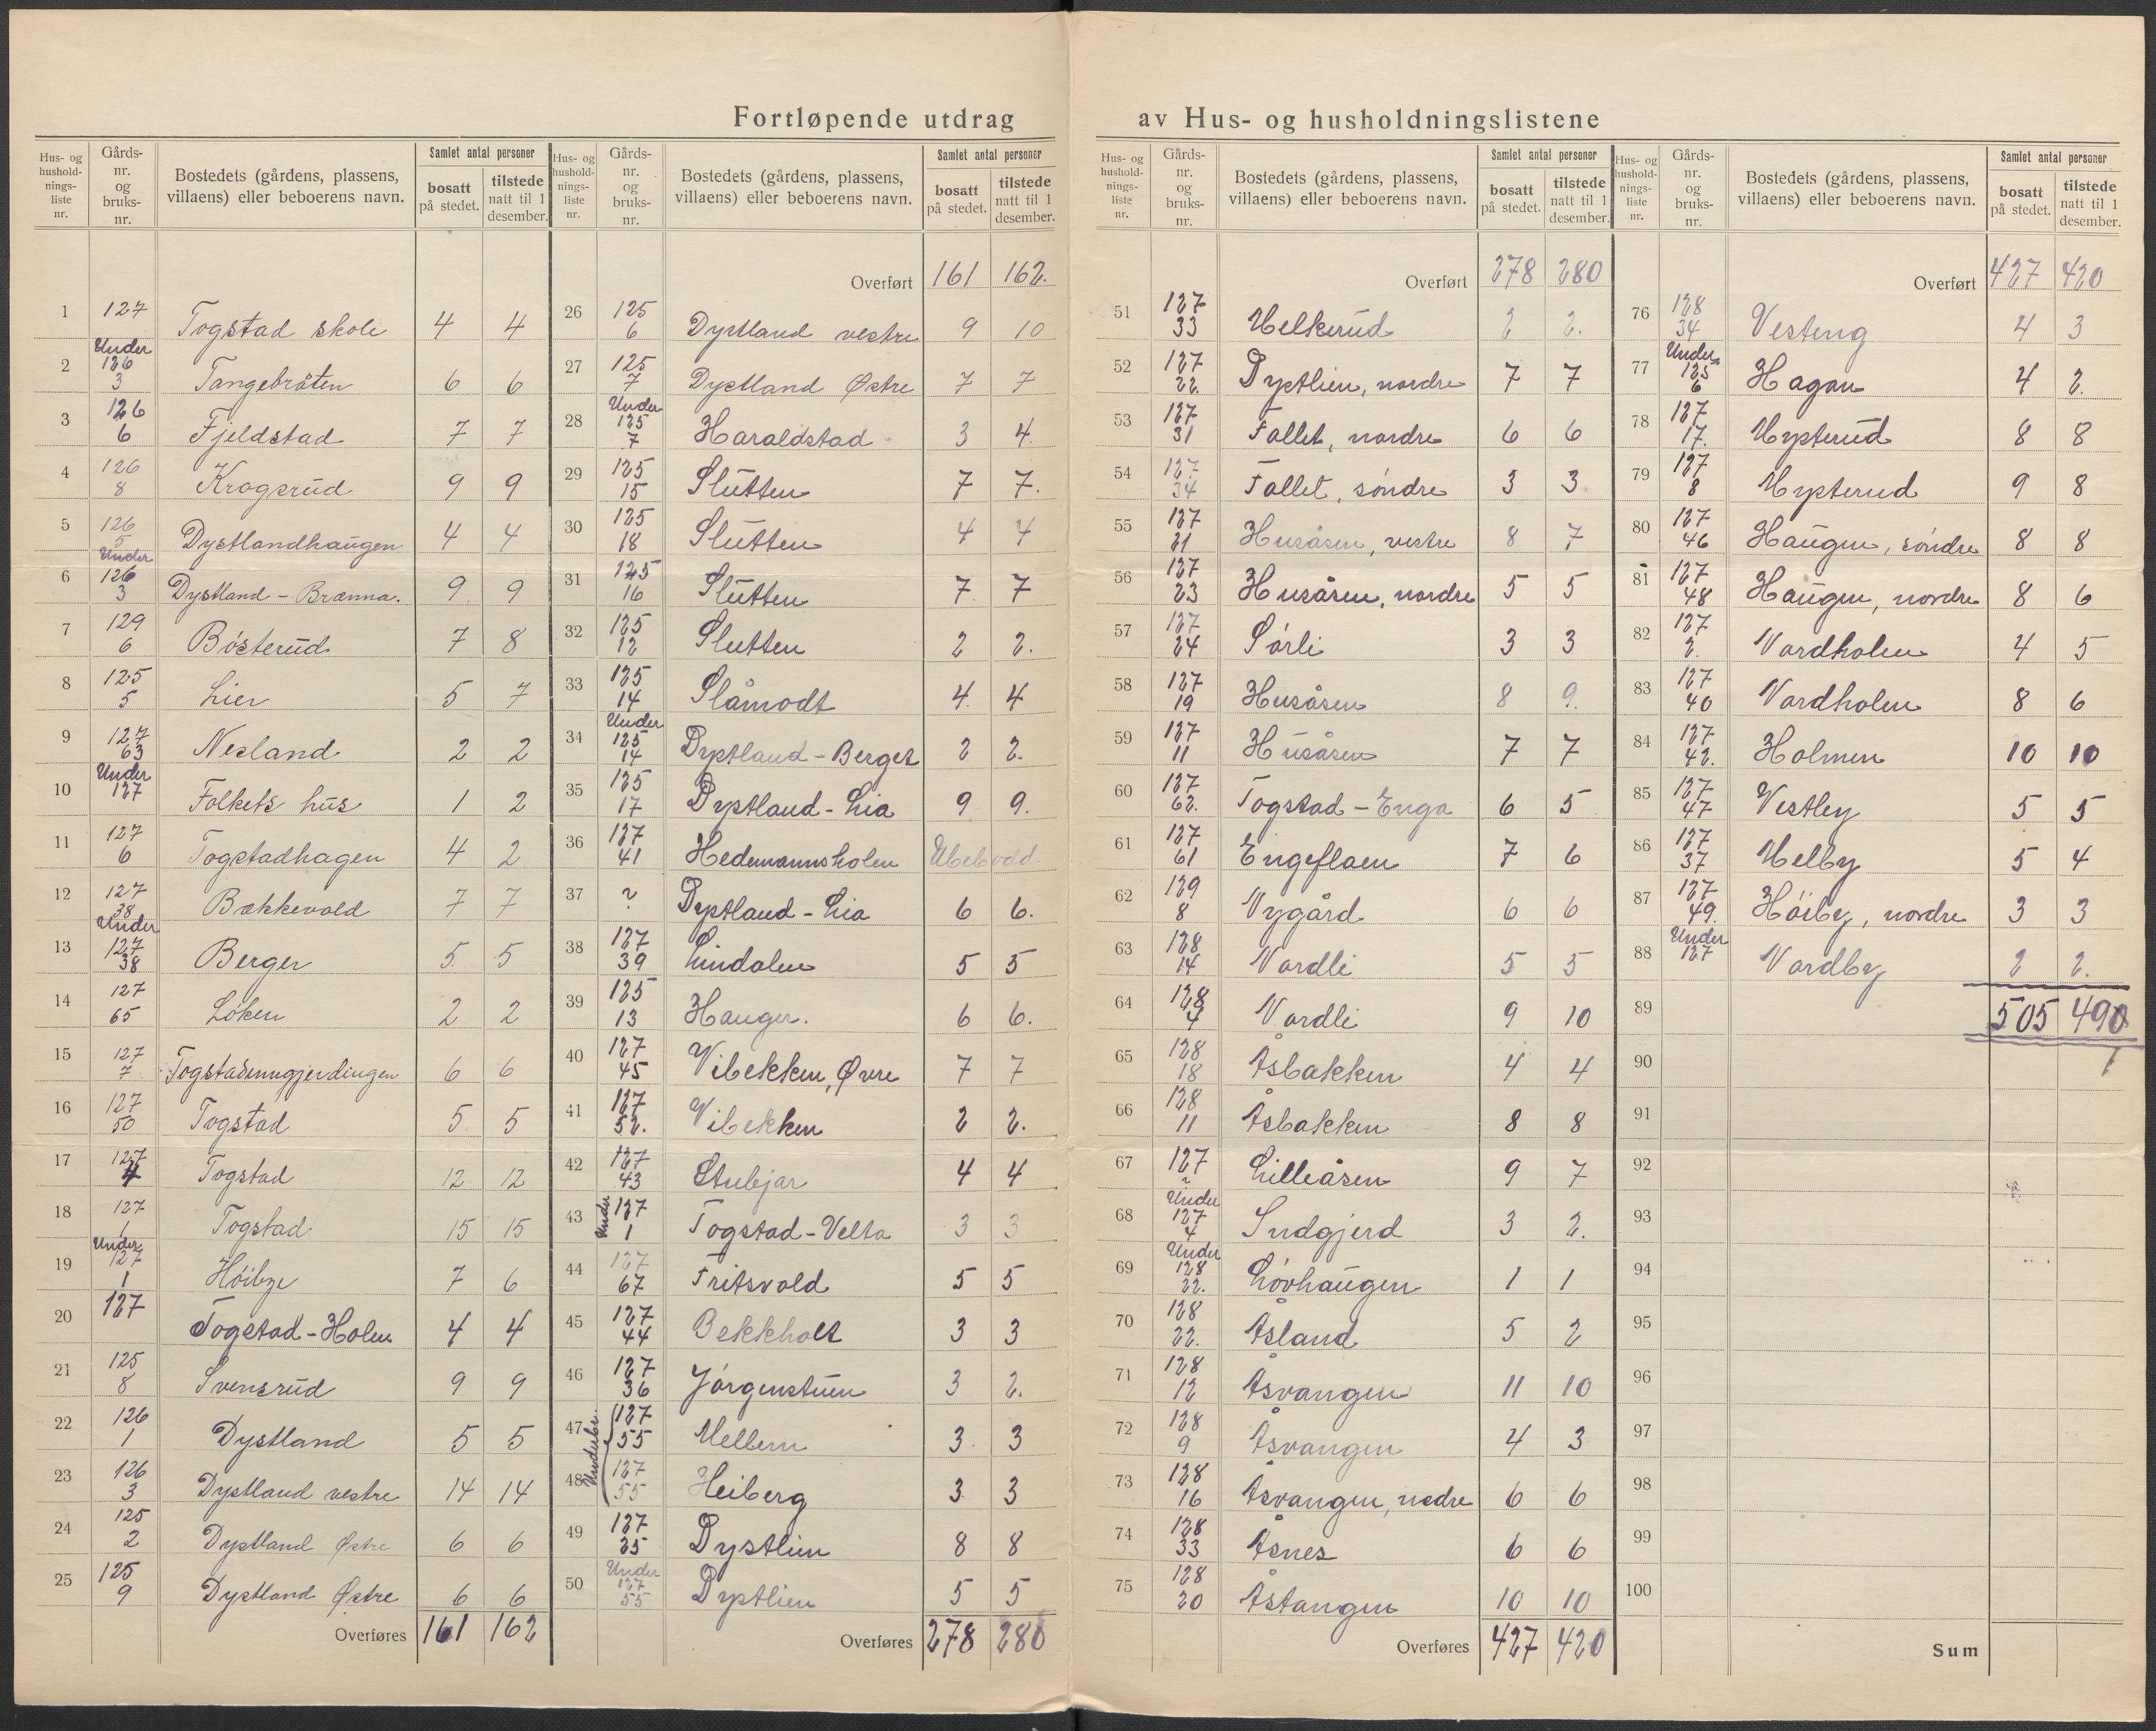 Fortløpende utdrag av Hus- og husholdningslistene
Hus- og husholdningsliste nr. | Gårds-nr. og bruks-nr. | Bostedets (gårdens, plassens, villaens) eller beboerens navn. | Samlet antal personer bosatt på stedet. | tilstede natt til 1 desember.
1 127 Togstad skole 4 4
2 Under 126 3 Tangebråten 6 6
3 126 6 Fjeldstad 7 7
4 126 8 Krogsrud 9 9
5 126 5 Dystlandhaugen 4 4
6 Under 126 3 Dystland - Brænna. 9 9
7 129 6 Bösterud 7 8
8 125 5 Lier 5 7
9 127 63 Nesland 2 2
10 Under 127 Folkets hus 1 2
11 127 6 Togstadhagen 4 2
12 127 38 Bækkevold 7 7
13 Under 127 38 Berger 5 5
14 127 65 Løken 2 2
15 127 7 Togstadenngjerdingen 6 6
16 127 50 Togstad 5 5
17 127 4 Togstad 12 12
18 127 1 Togstad 15 15
19 Under 127 1 Höiby 7 6
20 127 Togstad - Holen 4 4
21 125 8 Svensrud 9 9
22 126 1 Dystland 5 5
23 126 3 Dystland vestre 14 14
24 125 2 Dystland Østre 6 6
25 125 9 Dystland Østre 6 6
Overføres 161 162
Hus- og husholdningsliste nr. | Gårds-nr. og bruks-nr. | Bostedets (gårdens, plassens, villaens) eller beboerens navn. | Samlet antal personer bosatt på stedet. | tilstede natt til 1 desember.
Overført 161 162.
26 125 6 Dystland vestre 9 10
27 125 7 Dystland Østre 7 7
28 Under 125 7 Haraldstad 3 4.
29 125 15 Slutten 7 7.
30 125 18 Slutten 4 4
31 125 16 Slutten 7. 7
32 125 12 Slutten 2 2.
33 125 14 Slåmodt 4. 4
34 Under 125 14 Dystland - Berget 2 2.
35 125 17 Dystland - Lia 9 9.
36 127 41 Hedemannsholen Ubebodd.
37 ? Dystland - Lia 6 6.
38 127 39 Lindalen 5 5
39 125 13 Hauger. 6 6.
40 127 45 Vibekken, Øvre 7 7
41 127 52. Vibekken 2 2.
42 127 43 Stubjar 4 4
43 Under 127 1 Togstad - Velta 3 3
44 127 67 Fritsvold 5 5
45 127 44 Bekkholt 3 3
46 127 36 Jörgenstuen 3 2.
47 Underbr. 127 55 Mellem 3. 3
48 127 55 Heiberg 3 3
49 127 35 Dystlien 8 8
50 Under 127 55 Dystlien 5 5
Overføres 278 280
Hus- og husholdningsliste nr. | Gårds-nr. og bruks-nr. | Bostedets (gårdens, plassens, villaens) eller beboerens navn. | Samlet antal personer bosatt på stedet. | tilstede natt til 1 desember.
Overført 278 280
51 127 33 Melkerud 2 2.
52 127 22. Dystlien, nordre 7 7
53 127 31 Fallet, nordre 6 6
54 127 34 Fallet, söndre 3 3
55 127 21 Husåsen, vestre 8 7
56 127 23 Husåsen, nordre 5 5
57 127 24 Sörli 3 3
58 127 19 Husåsen 8 9.
59 127 11 Husåsen 7 7
60 127 62. Togstad - Enga 6 5
61 127 61 Engeflaen 7 6
62 129 8 Nygård 6 6
63 128 14 Nordli 5 5
64 128 4 Nordli 9 10
65 128 18 Åsbakken 4 4
66 128 11 Åsbakken 8 8
67 127 ? Lilleåsen 9 7
68 Under 127 4 Sndgjerd 3 2.
69 Under 128 22. Lövhaugen 1 1
70 128 22. Åsland 5 2
71 128 12 Åsvangen 11 10
72 128 9 Åsvangen 4 3
73 128 16 Åsvangen, nedre 6 6
74 128 33 Åsnes 6 6
75 128 20 Åstangen 10 10
Overføres 427 420
Hus- og husholdningsliste nr. | Gårds-nr. og bruks-nr. | Bostedets (gårdens, plassens, villaens) eller beboerens navn. | Samlet antal personer bosatt på stedet. | tilstede natt til 1 desember.
Overført 427 420
76 128 34 Vesteng 4 3
77 Under 125 6 Hagan 4 2.
78 127 17. Mysterud 8 8
79 127 8 Mysterud 9 8
80 127 46 Haugen, söndre 8 8
81 127 48 Haugen, nordre 8 6
82 127 2. Nordholen 4 5
83 127 40 Nordholen 8 6
84 127 42. Holmen 10 10
85 127 47 Vestley 5 5
86 127 37 Melby 5 4
87 127 49. Höiby, nordre 3 3
88 Under 127 Nordby 2 2.
89 505 490
90
91
92
93
94
95
96
97
98
99
100
Sum